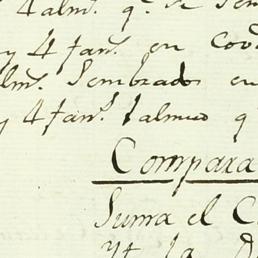 4 alm.s q.e se sem
y 4 fan.s en Cov
alm.s Sembrado en
y 4 fan.s 1 almud q
Compara
Suma el C
Yt la D